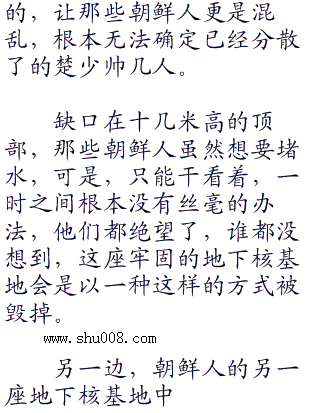 的，让那些朝鲜人更是混
乱，根本无法确定已经分散
了的楚少帅几人。
缺口在十几米高的顶
部，那些朝鲜人虽然想要堵
水，可是，只能干看着，一
时之间根本没有丝毫的办
法，他们都绝望了，谁都没
想到，这座牢固的地下核基
地会是以一种这样的方式被
毁掉。
www.shu008.com
另一边，朝鲜人的另一
座地下核基地中